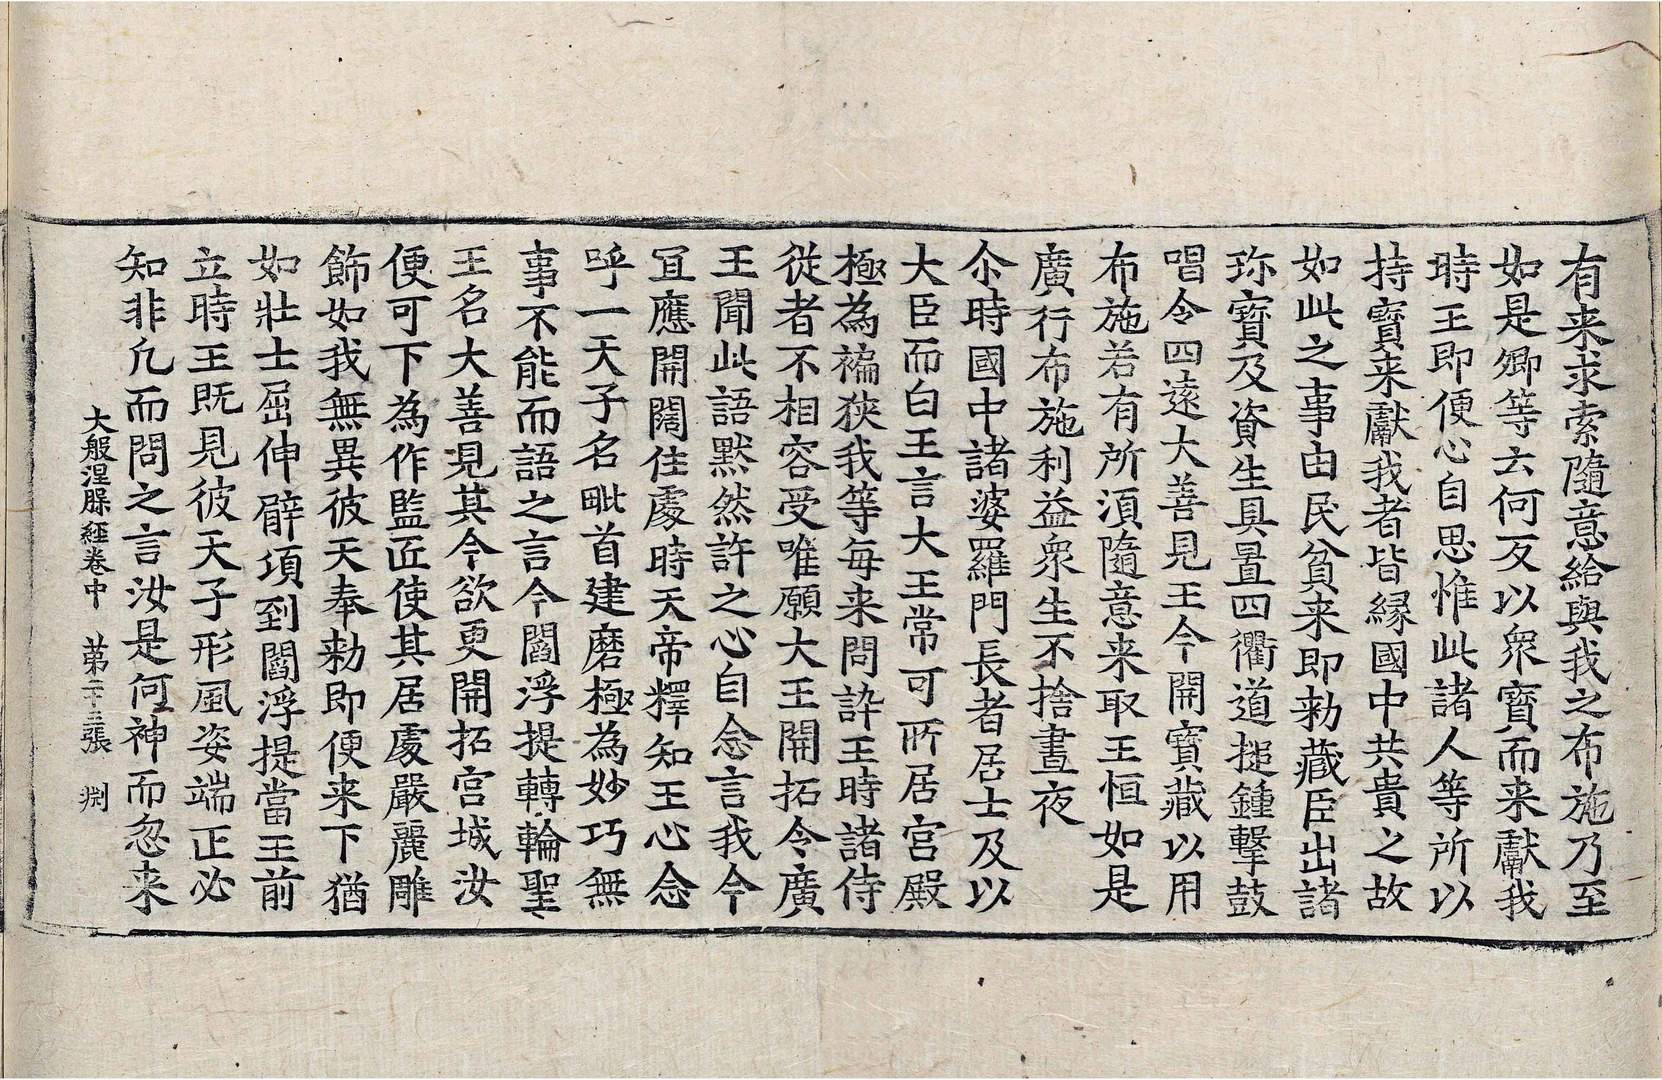 有来求索隨意給與我之布施乃至
如是卿等云何反以衆寳而来獻我
時王即便心自思惟此諸人等所以
持寳来獻我者皆縁國中共貴之故
如此之事由民貧来即勑藏臣出諸
珎寳及資生具置四衢道搥鍾擊鼓
唱令四遠大善見王今開寳藏以用
布施若有所須隨意来取王恒如是
廣行布施利益衆生不捨晝夜
尒時國中諸婆羅門長者居士及以
大臣而白王言大王常可所居宫殿
極為褊狹我等每来問訊王時諸侍
従者不相容受唯願大王開拓令廣
王聞此語默然許之心自念言我今
冝應開闊住處時天帝釋知王心念
呼一天子名毗首建磨極為妙巧無
事不能而語之言今閻浮提轉輪聖
王名大善見其今欲更開拓宫城汝
便可下為作監匠使其居處嚴麗雕
飾如我無異彼天奉勑即便来下猶
如壯士屈伸臂項到閻浮提當王前
立時王既見彼天子形風姿端正必
知非凢而問之言汝是何神而忽来
大般涅槃經卷中 苐二十三張